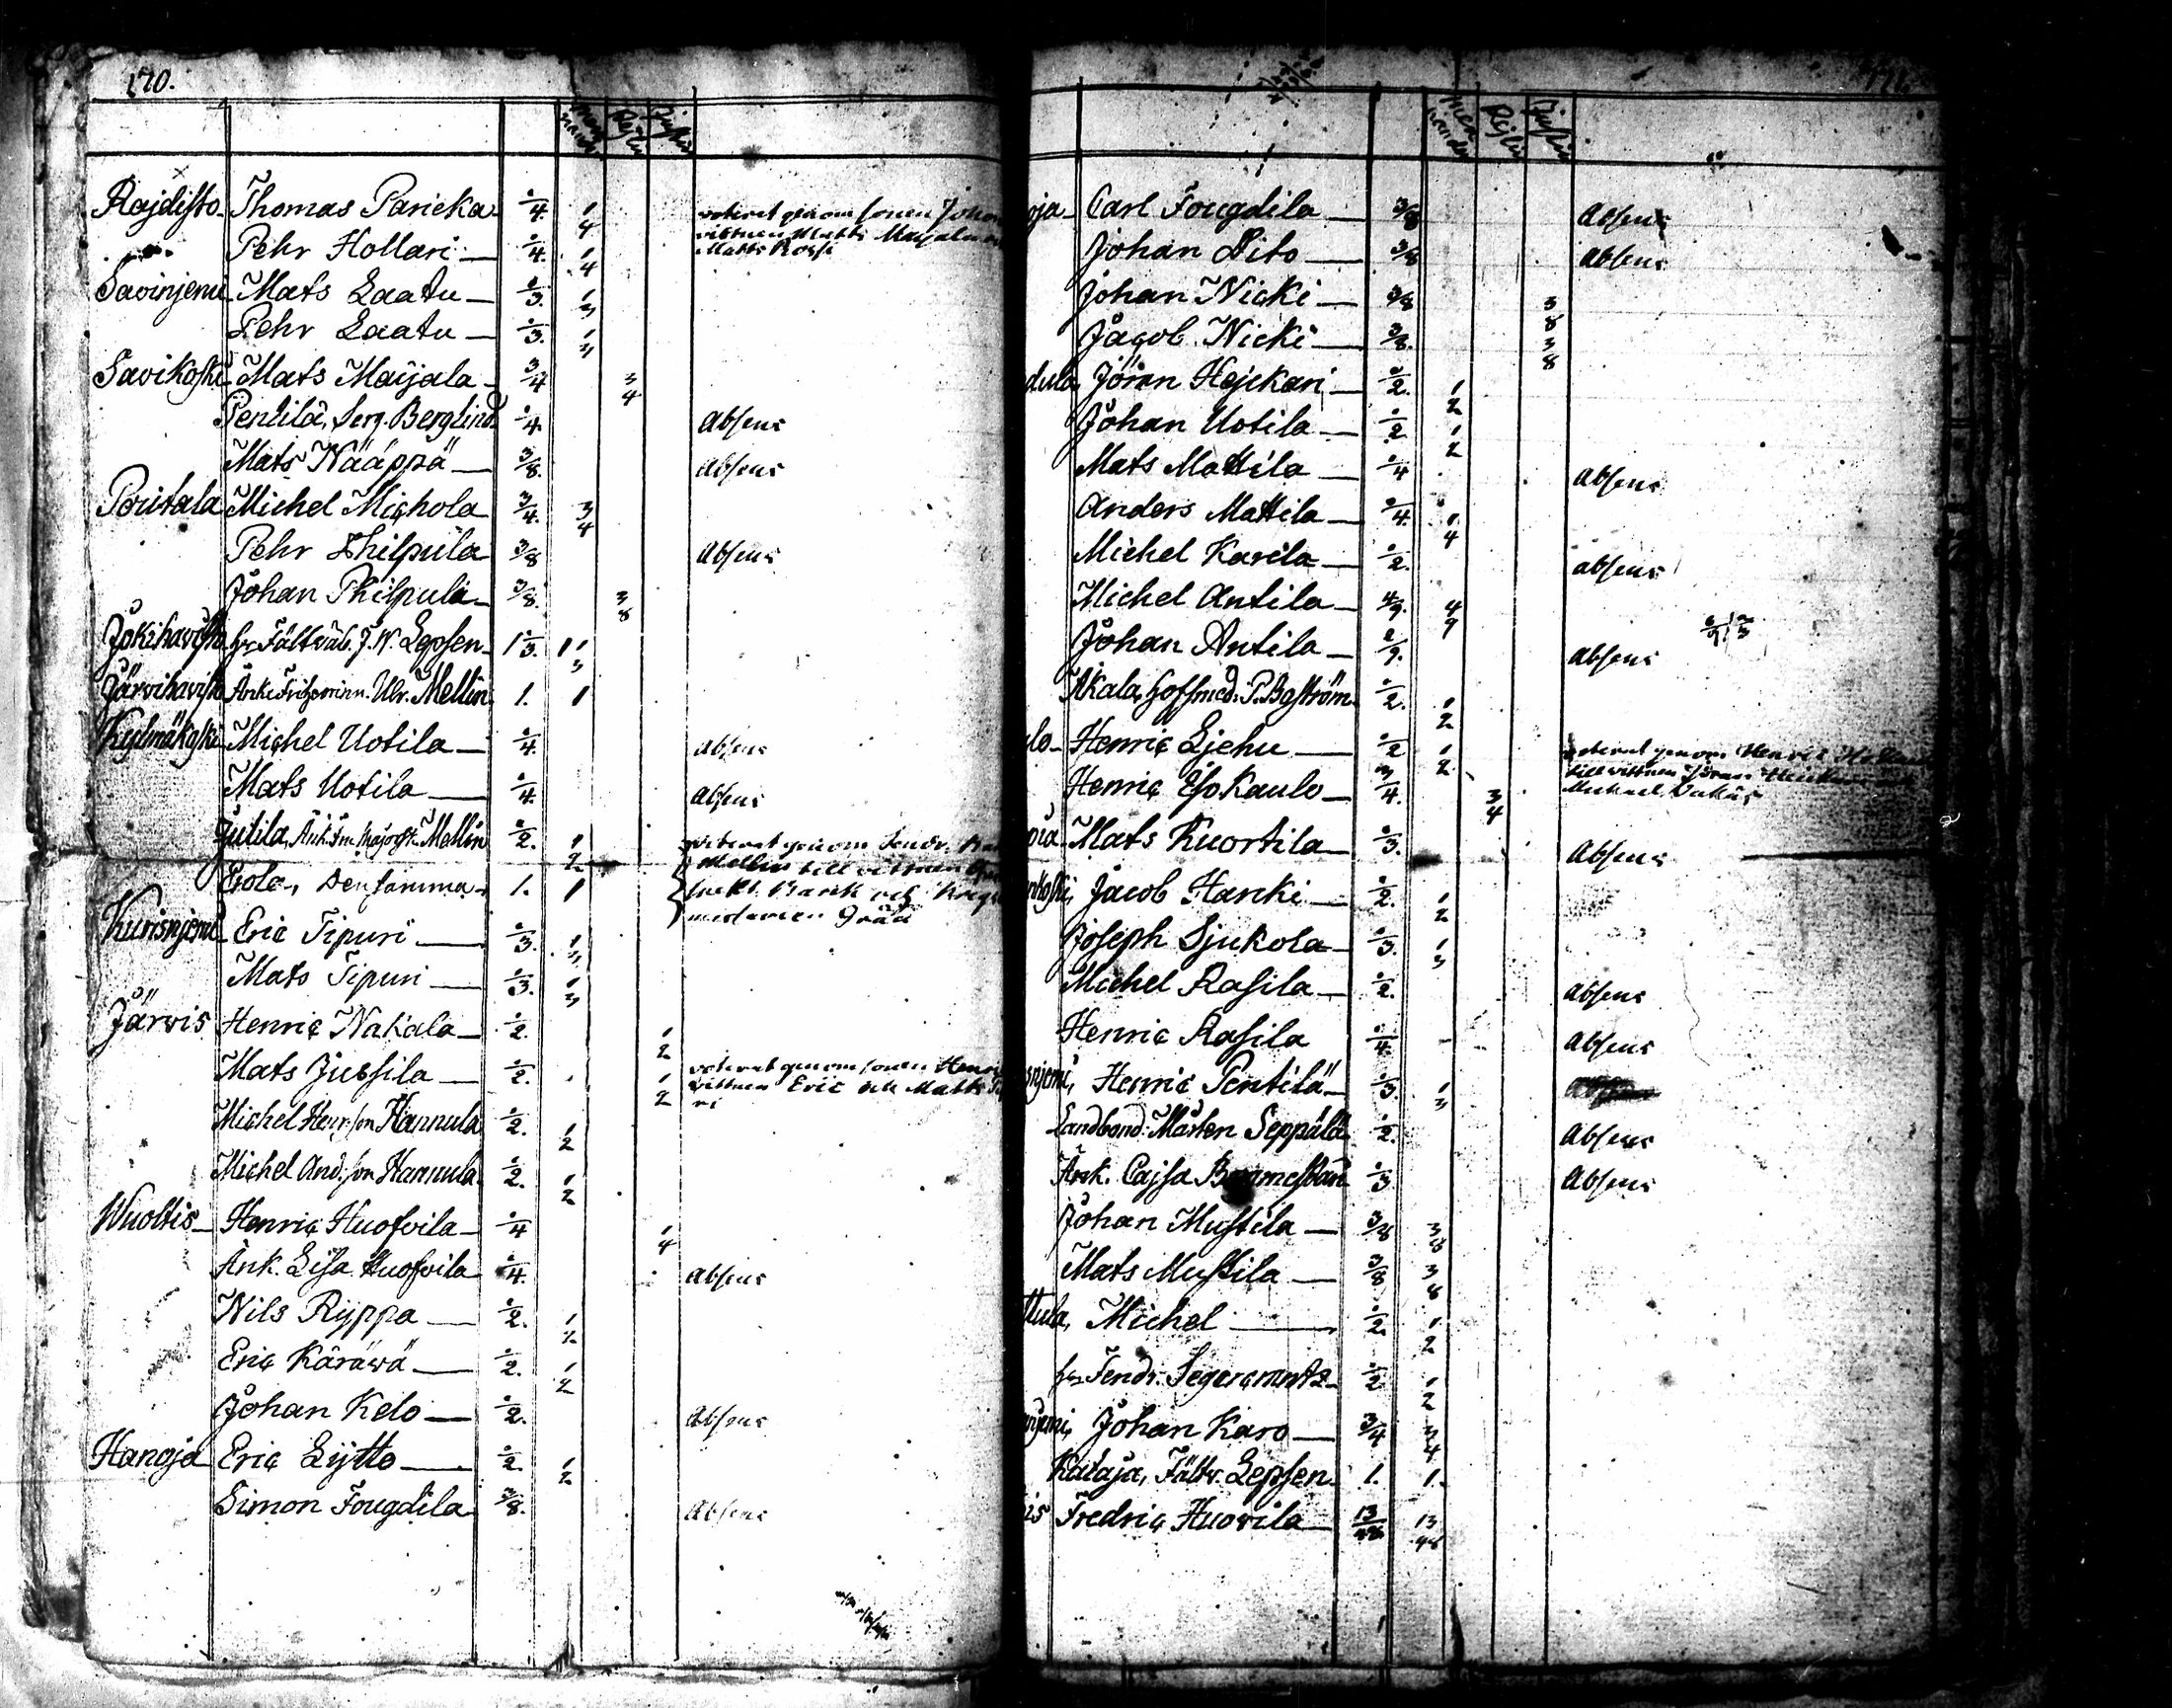 170.
Rajdisto Thomas Paricka 1/4 1/4 voterat genom sonen Johan
vittnen Matts Maijala
Matts Rossi
Pehr Hollari 1/4. 1/4
Savinjemi Mats Laatu 1/3. 1/3
Pehr Laatu 1/3. 1/3
Savikoski Mats Maijala 3/4 3/4
Pentilä, Serg. Berglind 1/4. Absens
Mats Nääppä 3/8. Absens
Poutala Michel Michola 3/4. 3/4
Pehr Philpula 3/8 Absens
Johan Philpula 3/8. 3/8
Jokihavisto hr Fältväb. J. W. Lepsen 1 1/3. 1 1/3
Järvihavisto Änke Ulr. Mellin 1. 1
Kylmäkoski Michel Uotila 1/4. Absens
Mats Uotila 1/4. Absens
Jutila, Änk. Mellin 1/2. 1/2 voterat genom
Mellin till vittnen
Erola, Densamma 1. 1 och
Kurisnjemi Eric Tipuri 1/3. 1/3
Mats Tipuri 1/3. 1/3
Järvis Henric Nakala 1/2. 1/2
Mats Jussila 1/2. 1/2 voterat genom sonen Henric
vittnen Eric och Matts
Michel Henr:son Hannula 1/2. 1/2
Michel And:son Hannula 1/2. 1/2
Wuoltis Henric Huofvila 1/4 1/4
Änk. Lisa Huofvila 1/4. Absens
Nils Ryppa 1/2. 1/2
Eric Käräwä 1/2. 1/2
Johan Kelo 1/2. Absens
Hanoja Eric Lytto 1/2. 1/2
Simon Fougdila 3/8. Absens
171.
oja Carl Fougdila 3/8 Absens
Johan Dito 3/8 Absens
Johan Nicki 3/8 3/8
Jacob Nicki 3/8. 3/8
dula, Jöran Hejckari 1/2. 1/2
Johan Uotila 1/2 1/2
Mats Mattila 1/4 Absens
Anders Mattila 1/4. 1/4
Michel Karila 1/2. absens
Michel Antila 4/9. 4/9
Johan Antila 2/9. Absens
Akala, P. Boström 1/2. 1/2
lo Henric Ljehu 1/2 1/2 voterat genom Henric
till vittnen Jöran
Michael
Henric Esokaulo 3/4. 3/4
Mats Kuortila 1/3. Absens
koski, Jacob Hanki 1/2. 1/2
Joseph Sjukola 1/3. 1/3
Michel Rasila 1/2. Absens
Henric Rasila 1/4. Absens
snjemi, Henric Pentilä 1/3. 1/3
Landbond: Mårten Seppälä 1/2. Absens
Änk. Cajsa 1/3 Absens
Johan Mustila 3/8 3/8
Mats Mustila 3/8 3/8
ttula, Michel 1/2. 1/2
hr Fendr. Segercrantz 1/2 1/2
njemi, Johan Karo 3/4 3/4
Kataja, Fältv. Lepsen 1. 1.
is Fredric Huovila 13/48 13/48